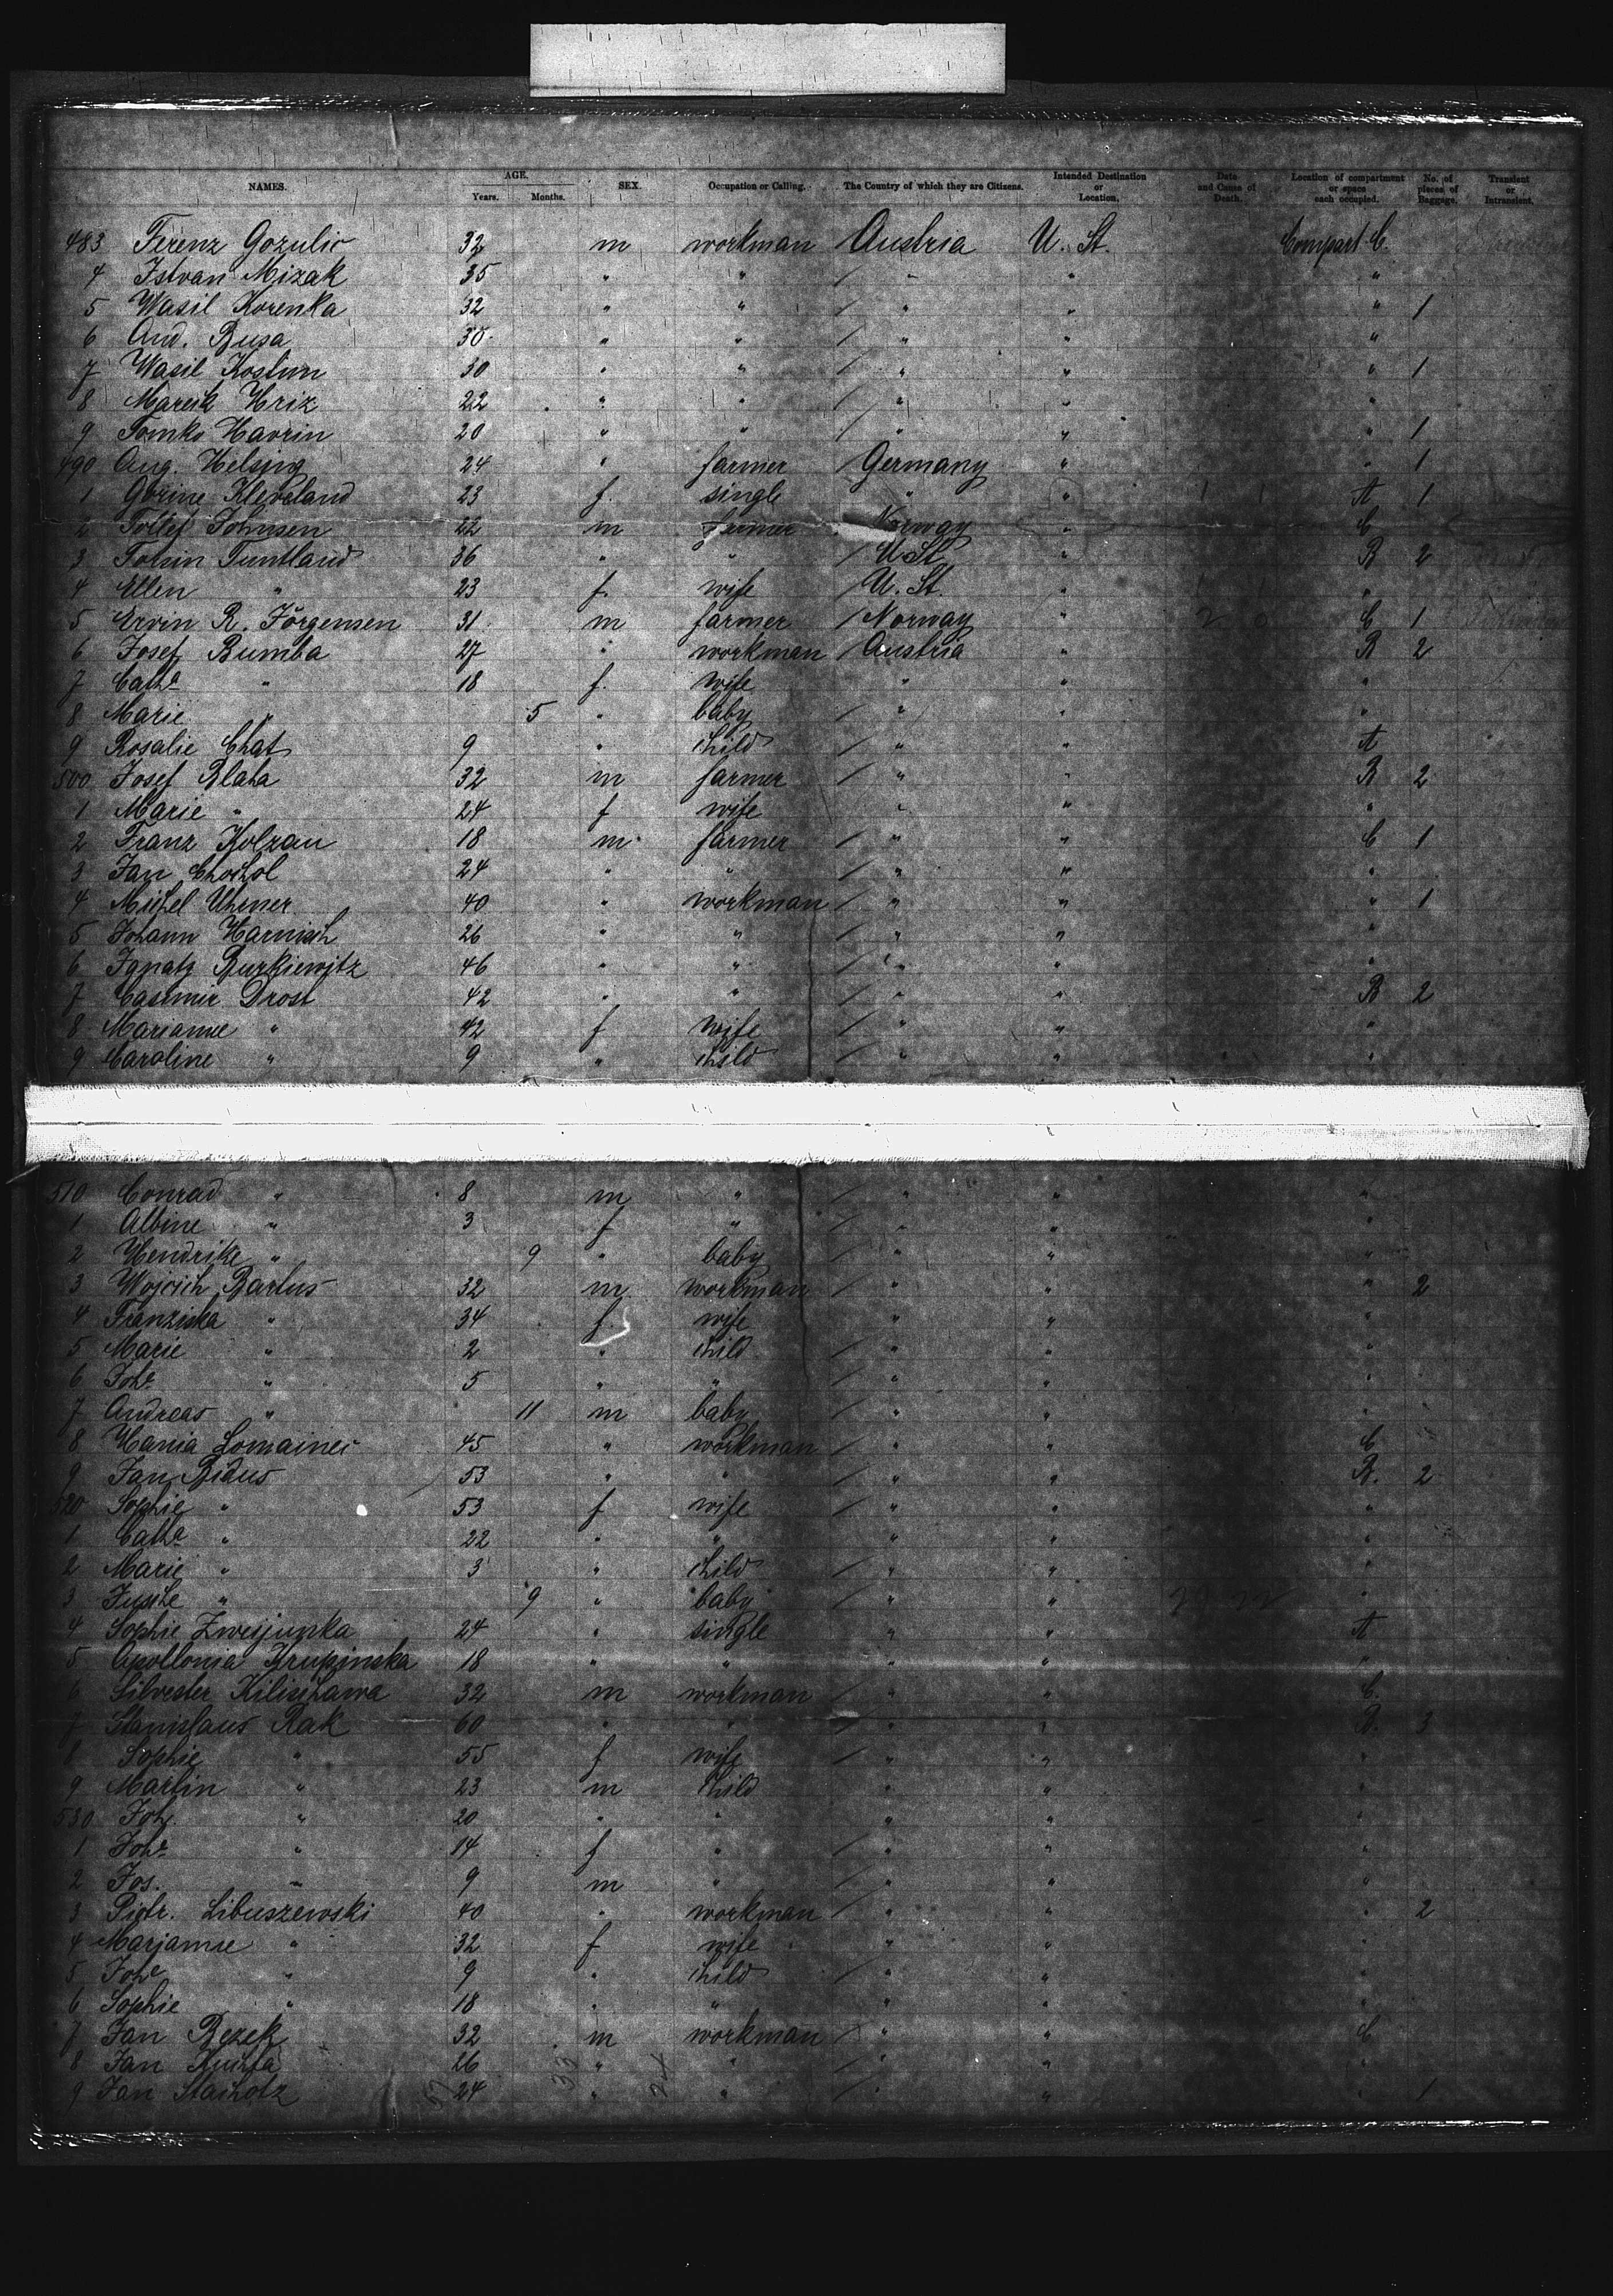 NAMES. AGE. Years. Months. SEX. Occupation or Calling. The Country of which they are Citizens. Intended Destination or Location. Date and Cause of Death. Location of compartment or space each occupied. No. of pieces of Baggage. Transient or Intransient.
483 Ferenz Gozulic 32 m workman Austria U. St. Compart C.
4 Istvan Mizak 35 " " / " " "
5 Wasil Korenka 32 " " / " " " 1
6 And. Busa 30 " " / " " "
7 Wasil Kostim 30 " " / " " " 1
8 Marcik Hriz 22 " " / " " "
9 Tomko Havrin 20 " " / " " " 1
490 Aug. Helsing 24 " farmer / Germany " " 1
1 Gorine Kleveland 23 f. single / " " A 1
2 Tollef Johnsen 22 m farmer Norway " C
3 Tolsin Tuntland 36 " " / U. St. " B 2
4 Ellen " 23 f. wife / U. St. " "
5 Ervin R. Jörgensen 31 m farmer / Norway " C 1
6 Josef Bumba 27 " workman / Austria " B 2
7 Cathe " 18 f. wife " " "
8 Marie " 5 " baby / " " "
9 Rosalie Chat 9 " child / " " A
500 Josef Blaha 32 m farmer / " " B 2
1 Marie " 24 f wife " " "
2 Franz Kolzau 18 m farmer / " " C 1
3 Jan Chochol 24 " " / " " "
4 Michel Uhrner 40 " workman / " " " 1
5 Johann Harnisch 26 " " / " " "
6 Ignatz Burkiewitz 46 " " / " " "
7 Casimir Drost 42 " " / " " B 2
8 Marianne " 42 f wife / " " "
9 Caroline " 9 " child / " " "
510 Conrad " 8 m " / " " "
1 Albine " 3 f " / " " "
2 Hendrike " 9 " baby / " " "
3 Wojcich Bartus 32 m workman " " " 2
4 Franziska " 34 f. wife " " "
5 Marie " 2 " child / " " "
6 Johe " 5 " " / " " "
7 Andreas " 11 m baby / " " "
8 Hania Lomainec 45 " workman / " " C
9 Jan Bidus 53 " " / " " B. 2
520 Sophie " 53 f wife / " " "
1 Cathe " 22 " " " " "
2 Marie " 3 " child / " " "
3 Jusche " 9 " baby / " " "
4 Sophie Zweijunka 24 " single " " A
5 Apollonia Krupinska 18 " " " " "
6 Silvester Kilischawa 32 m workman / " " C.
7 Stanislaus Rak 60 " " " " B. 3
8 Sophie " 55 f wife / " " "
9 Martin " 23 m child " " "
530 Joh. " 20 " " " " "
1 Johe " 14 f " / " " "
2 Jos. " 9 m " / " " "
3 Piotr. Libuszewski 40 " workman / " " " 2
4 Marjanne " 32 f wife / " " "
5 Johe " 9 " child / " " "
6 Sophie " 18 " " " " "
7 Jan Bezek 32 m workman / " " C
8 Jan Kuchta 26 " " / " " "
9 Jan Stachotz 24 " " / " " " 1